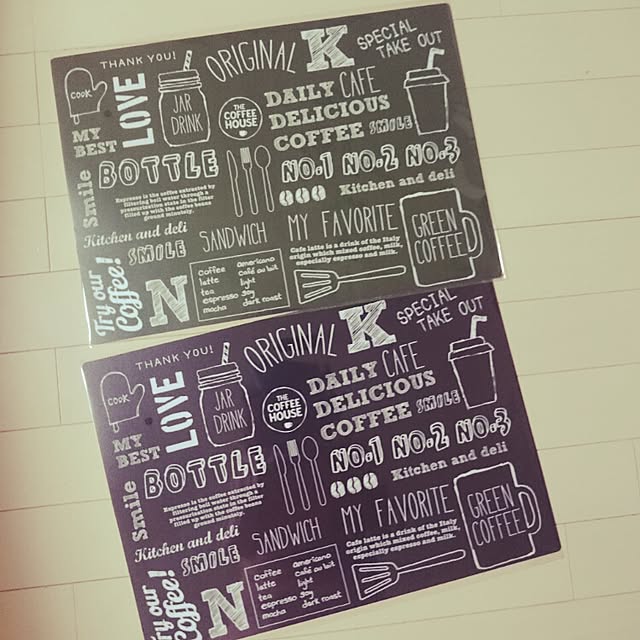 THANK YOU!
ORIGINAL
K
SPECIAL
TAKE OUT
COOK
MY
BEST
LOVE
JAR
DRINK
THE
COFFEE
HOUSE
DAILY CAFE
DELICIOUS
COFFEE SMILE
BOTTLE
NO.1 NO.2 NO.3
Kitchen and deli
Smile
Espresso is the coffee extracted by
filtering boil water through a
pressurization state in the filter
filled up with the coffee beans
ground minutely.
Kitchen and deli
SMILE
SANDWICH
MY FAVORITE
Cafe latte is a drink of the Italy
origin which mixed coffee, milk,
especially espresso and milk.
GREEN
COFFEE
Try our
Coffee!
N
coffee americano
latte café au lait
tea light
espresso soy
mocha dark roast
THANK YOU!
ORIGINAL
K
SPECIAL
TAKE OUT
COOK
MY
BEST
LOVE
JAR
DRINK
THE
COFFEE
HOUSE
DAILY CAFE
DELICIOUS
COFFEE SMILE
BOTTLE
NO.1 NO.2 NO.3
Kitchen and deli
Smile
Espresso is the coffee extracted by
filtering boil water through a
pressurization state in the filter
filled up with the coffee beans
ground minutely.
Kitchen and deli
SMILE
SANDWICH
MY FAVORITE
Cafe latte is a drink of the Italy
origin which mixed coffee, milk,
especially espresso and milk.
GREEN
COFFEE
Try our
Coffee!
N
coffee americano
latte café au lait
tea light
espresso soy
mocha dark roast